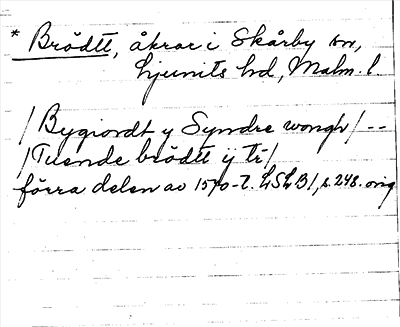 * Brödtt, åkrar i Skårby sn,
Ljunits hd, Malm. l.
/Bygiordt y Syndre wongh/ --
/Tuende brödtt ij tr/
förra delen av 1570-t. LSLB1, s. 248. orig